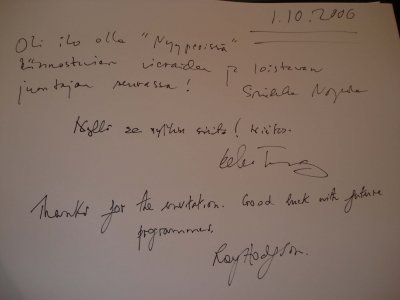 1.10.2006
Oli ilo olla "Nyyperissä"
kiinnostavien vieraiden ja loistavan
juontajan seurassa!
Kyllä se siitä! Kiitos.
Thanks for the invitation. Good luck with future
programmes.
Roy Hodgson.